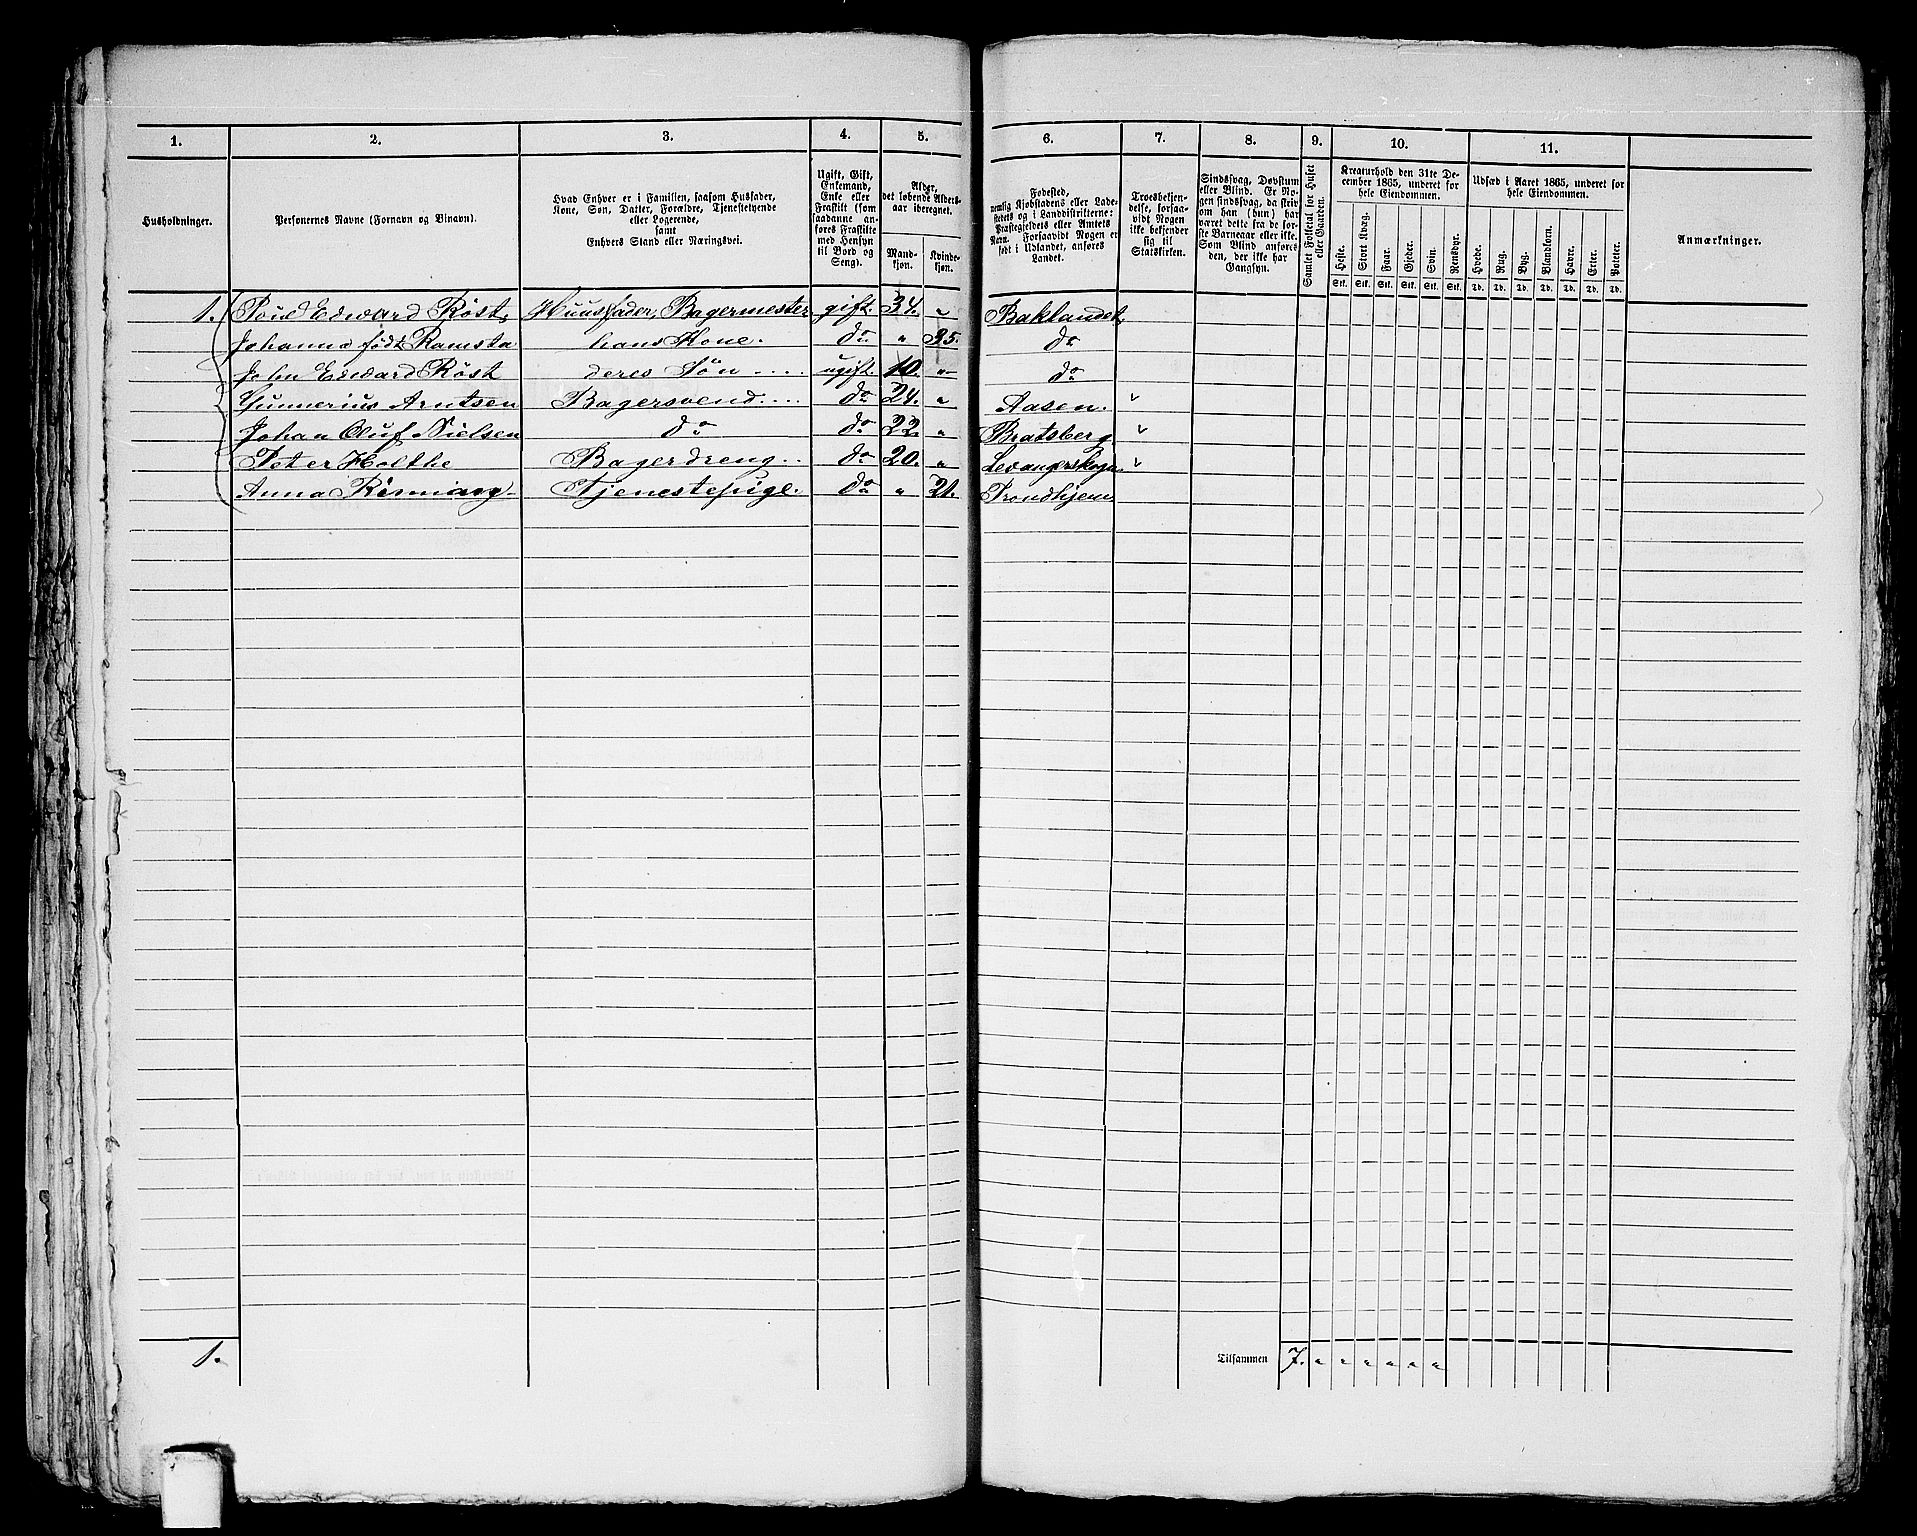 1. 2. 3. 4. 5. 6. 7. 8. 9. 10. 11.
Husholdninger.
Personernes Navne (Fornavn og Tilnavn).
Hvad Enhver er i Familien, saasom Husfader,
Kone, Søn, Datter, Forældre, Tjenestetyende
eller Logerende,
samt
Enhvers Stand eller Næringsvei.
Ugift, Gift,
Enkemand,
Enke eller
Fraskilt (som
saadanne an-
føres Fraskilte
med Hensyn
til Bord og
Seng).
Alder,
det løbende Alders-
aar iberegnet.
Mand-
kjøn.
Kvinde-
kjøn.
Fødested,
nemlig Kjøbstadens eller Lade-
stedets og i Landdistrikterne:
Præstegjeldets eller Amtets
Navn. Forsaavidt Nogen er
født i Udlandet, anføres
Landet.
Troesbekjen-
delse, forsaa-
vidt Nogen
ikke bekjender
sig til
Statskirken.
Sindssvag, Døvstum
eller Blind. Er No-
gen sindssvag, da skriv
om han (hun) har
været dette fra de før-
ste Barneaar eller ikke.
Som Blind anføres
den, der ikke har
Gangsyn.
Samlet Folketal for Huset
eller Gaarden.
Kreaturhold den 31te De-
cember 1865, underet for
hele Eiendommen.
Heste. Stort Kvæg. Faar. Gjeder. Svin. Rensdyr.
Stk. Stk. Stk. Stk. Stk. Stk.
Udsæd i Aaret 1865, underet for
hele Eiendommen.
Hvede. Rug. Byg. Blandkorn. Havre. Erter. Poteter.
Td. Td. Td. Td. Td. Td. Td.
Anmærkninger.
1. Edward Röst, Huusfader, Bagermester gift. 34. " Baklandet,
Johanna födt Ramsta hans Kone. do " 35. do
John Edward Röst deres Søn ugift. 10. " do
Gunnerius Arntsen Bagersvend. do 24. " Aasen.
Johan Oluf Nielsen do do 22. " Bratsberg
Peter Holthe Bagerdreng do 20. "
Anna Tjenestepige. do " 21. Trondhjem
1. Tilsammen 7. " " " " " "